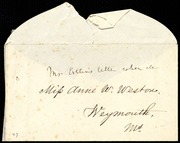 Mrs. Collins's letter
Miss Anne W. Weston,
Weymouth,
Ms